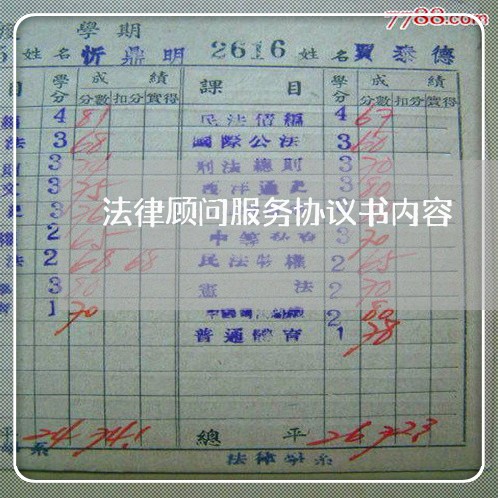 7788.com
學期
姓名 忻鼎明 2616 姓名 賈泰德
目 學分 成績 課目 學分 成績
分數 扣分 實得 分數 扣分 實得
4 81 民法債編 4 67
法 3 68 國際公法 3 60
3 刑法總則 3 70
3 75 西洋通史 3 80
法律顾问服务协议书内容
2 65 3 70
法 2 68 68 民法物權 2 65
3 80 憲法 2 70
1 70 2 80
普通體育 1 78
平 24 74.1 總平 26 72.3
系 法律學系